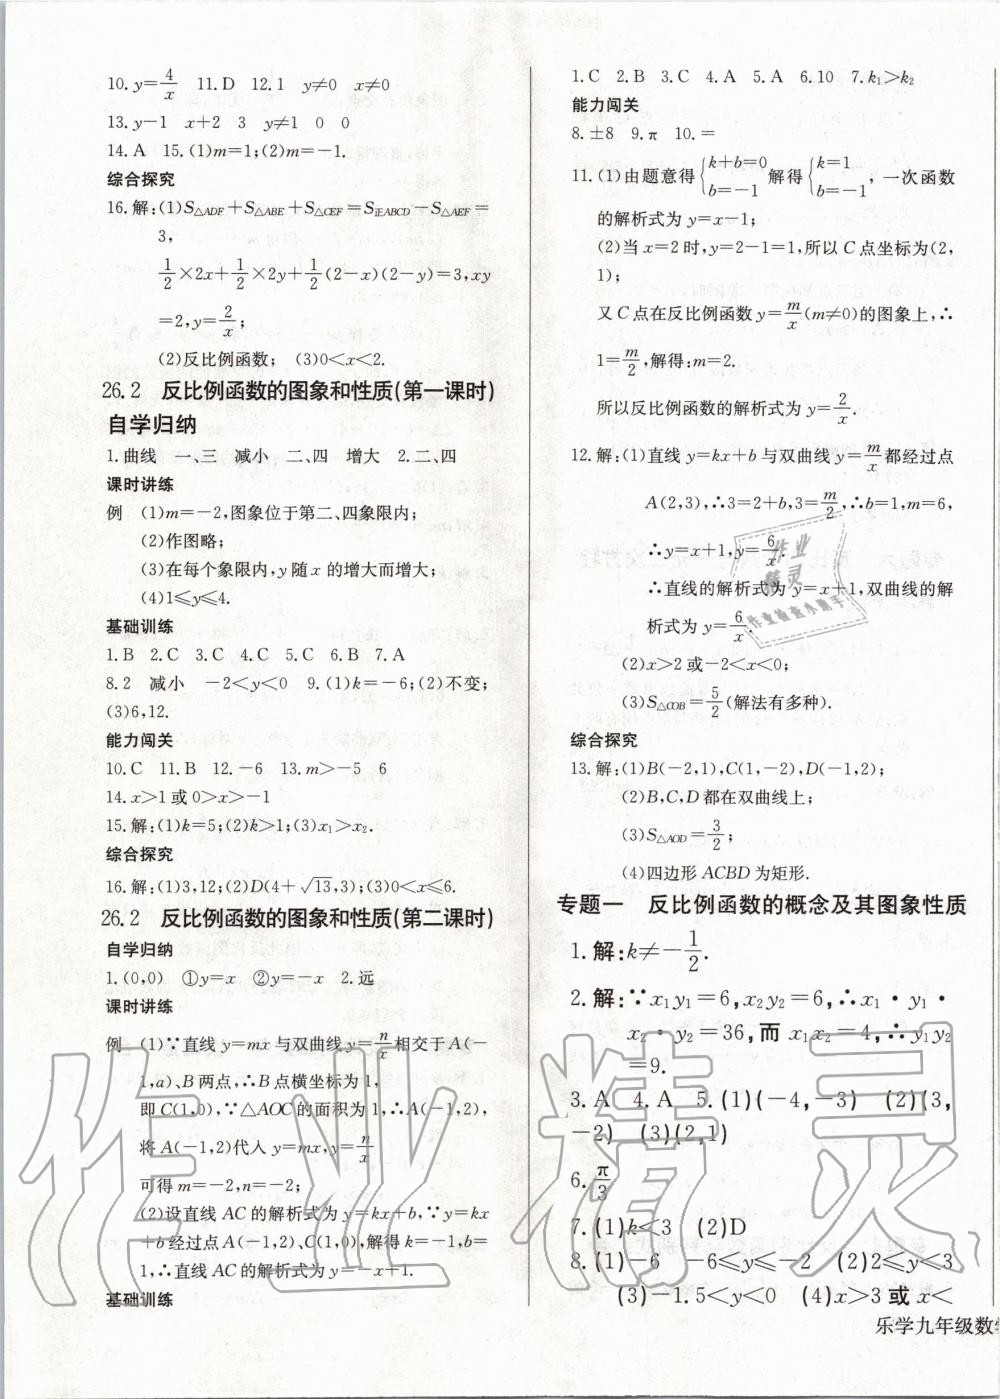 10. y=4/x　11. D　12. 1　y≠0　x≠0
13. y−1　x+2　3　y≠1　0　0
14. A　15. (1)m=1;(2)m=−1.
综合探究
16. 解:(1)S△ADF+S△ABE+S△CEF=S正ABCD−S△AEF=
3,
1/2×2x+1/2×2y+1/2(2−x)(2−y)=3,xy
=2,y=2/x;
(2)反比例函数;　(3)0<x<2.
26.2　反比例函数的图象和性质(第一课时)
自学归纳
1. 曲线　一、三　减小　二、四　增大　2. 二、四
课时讲练
例　(1)m=−2,图象位于第二、四象限内;
(2)作图略;
(3)在每个象限内,y随x的增大而增大;
(4)1≤y≤4.
基础训练
1. B　2. C　3. C　4. C　5. C　6. B　7. A
8. 2　减小　−2<y<0　9. (1)k=−6;(2)不变;
(3)6,12.
能力闯关
10. C　11. B　12. −6　13. m>−5　6
14. x>1或0>x>−1
15. 解:(1)k=5;(2)k>1;(3)x₁>x₂.
综合探究
16. 解:(1)3,12;(2)D(4+√13,3);(3)0<x≤6.
26.2　反比例函数的图象和性质(第二课时)
自学归纳
1. (0,0)　①y=x　②y=−x　2. 远
课时讲练
例　(1)∵直线y=mx与双曲线y=n/x相交于A(−
1,a)、B两点,∴B点横坐标为1,
即C(1,0),∵△AOC的面积为1,∴A(−1,2),
将A(−1,2)代入y=mx,y=n/x
可得m=−2,n=−2;
(2)设直线AC的解析式为y=kx+b,∵y=kx
+b经过点A(−1,2)、C(1,0),解得k=−1,b=
1,∴直线AC的解析式为y=−x+1.
基础训练
1. C　2. B　3. C　4. A　5. A　6. 10　7. k₁>k₂
能力闯关
8. ±8　9. π　10. =
11. (1)由题意得{k+b=0 b=−1 解得{k=1 b=−1,一次函数
的解析式为y=x−1;
(2)当x=2时,y=2−1=1,所以C点坐标为(2,
1);
又C点在反比例函数y=m/x(m≠0)的图象上,∴
1=m/2,解得:m=2.
所以反比例函数的解析式为y=2/x.
12. 解:(1)直线y=kx+b与双曲线y=m/x都经过点
A(2,3),∴3=2+b,3=m/2,∴b=1,m=6,
∴y=x+1,y=6/x.
∴直线的解析式为y=x+1,双曲线的解
析式为y=6/x.
(2)x>2或−2<x<0;
(3)S△COB=5/2(解法有多种).
综合探究
13. 解:(1)B(−2,1),C(1,−2),D(−1,2);
(2)B,C,D都在双曲线上;
(3)S△AOD=3/2;
(4)四边形ACBD为矩形.
专题一　反比例函数的概念及其图象性质
1. 解:k≠−1/2.
2. 解:∵x₁y₁=6,x₂y₂=6,∴x₁·y₁·
x₂·y₂=36,而x₁x₂=4,∴y₁y₂
=9.
3. A　4. A　5. (1)(−4,−3)　(2)(3,
−2)　(3)(2,1)
6. π/3
7. (1)k<3　(2)D
8. (1)−6　−6≤y≤−2　(2)2≤y≤3
(3)−1.5<y<0　(4)x>3或x<
乐学九年级数学
作业精灵
作业检查小助手
作业精灵